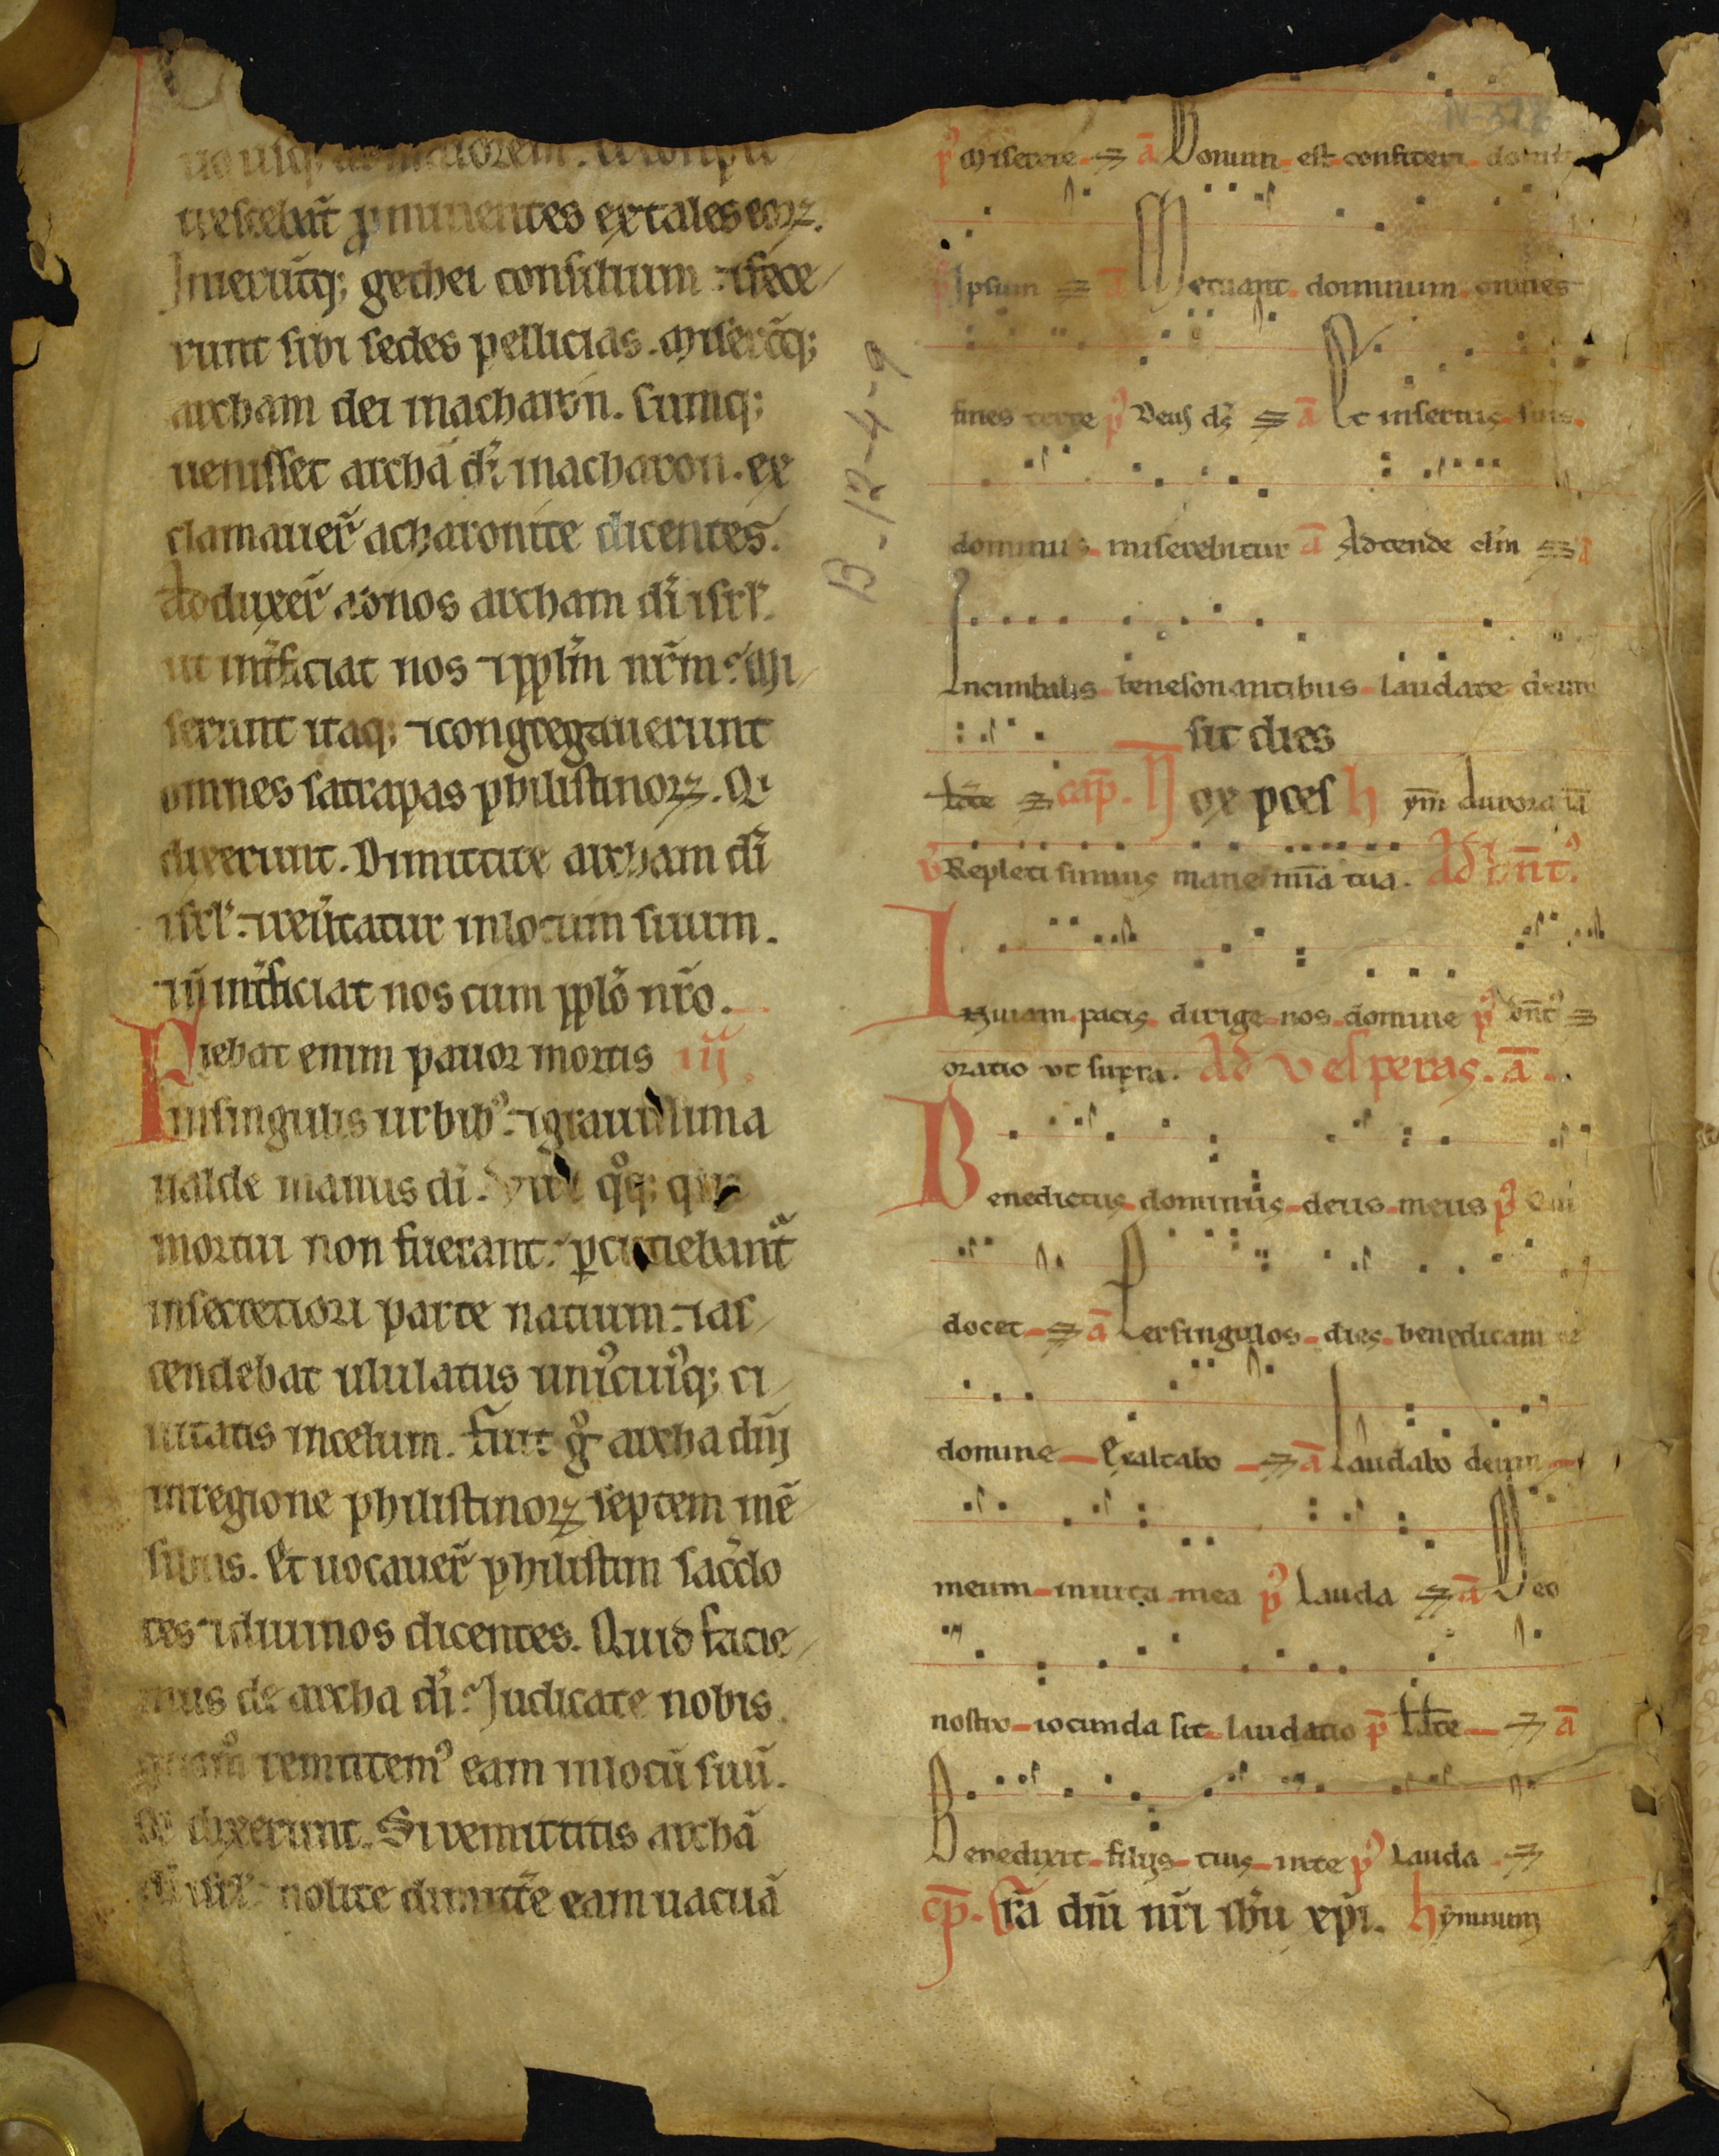 usq; ad maiorem.
uescebāt p̄minentes extales eoꝝ.
Inierūtq; gethei consilium ⁊ fece
runt sibi sedes pellicias. Miserūtq;
archam dei inacharon. Cumq;
uenisset archā dī inacharon. ex
clamauer̄ acharonite dicentes.
Adduxer̄ ad nos archam dī isrl̄.
ut int̄ficiat nos ⁊ ppl̄m nr̄m. Mi
serunt itaq; ⁊ congregauerunt
omnes satrapas philistinoꝝ. Qi
dixerunt. Dimittite archam dī
isrl̄. ⁊ reūtatur inlocum suum.
⁊ n̄ int̄ficiat nos cum pplō nr̄o.
Fiebat enim pauor mortis iij
insingulis urbibꝰ. ⁊ grauissima
ualde manus dī. Viri qͦq; qui
mortui non fuerant. ꝑcutiebant̄
insecretiori parte natium. ⁊ as
cendebat ululatus uniꝰcuiꝰq; ci
uitatis incelum. Fuit gͦ archa dn̄i
inregione philistinoꝝ septem mē
sibus. Et uocauer̄ philistiim sac̄do
tes ⁊ diuinos dicentes. Quid facie
mus de archa dī. Iudicate nobis
quōm̄ remittemꝰ eam inlocū suū.
Qi dixerunt. Si remittitis archā
dī isrl̄. nolite dimitt̄e eam uacuā
N-378
B-12-4-9
pꝰ Miserere. ā Bonum est confiteri domi
pꝰ Ipsum ā Metuant dominum omnes
fines terre pꝰ Deus dš ā Et inseruis suis
dominus miserebitur ā Adtende clm̄ ā
Incimbalis benesonantibus laudate deum
sit dies
Ldt̄e cap̄. Nox p̄ces hym̄ Aurora iā
v̄ Repleti sumus mane mīa tua. Ad bn̄tꝰ.
Inuiam pacis dirige nos domine pꝰ bn̄tꝰ
oratio ut supra. Ad uesperas. ā.
Benedictus dominus deus meus pꝰ Qui
docet ā Persingulos dies benedicam te
domine Exaltabo ā Laudabo deum
meum inuita mea pꝰ Lauda ā Deo
nostro iocunda sit laudatio p̄ Ldt̄e ā
Benedixit filijs tuis inte pꝰ Lauda
cp̄. Grā dn̄i nr̄i ihū xp̄i. hymnum